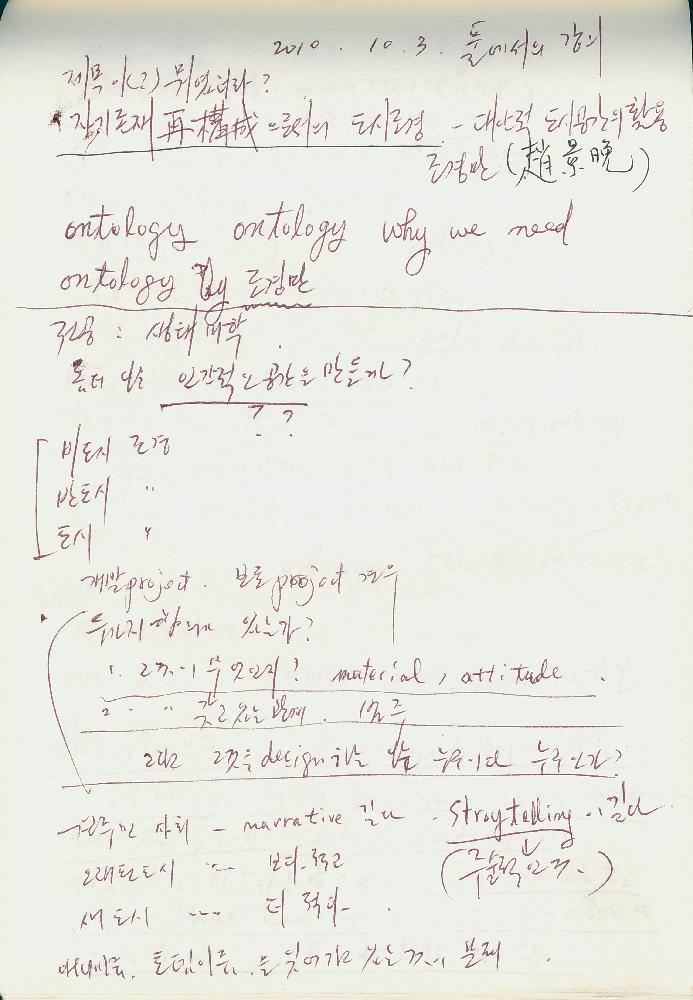 2010. 10. 3. 뜰에서의 강의
제목이(?) 뭐였더라?
자기존재 再構成으로서의 도시조경 - 대안적 도시공간의 활용
조경만 (趙景晩)
ontology ontology why we need
ontology by 조경만
전공 : 생태미학
인간적인 공간을 만들까?
? ?
비도시 조경
반도시 "
도시 "
개발project. 보존project 경우
두가지 있는가?
1. 그것이 무엇인지? material, attitude.
2. " 갖고 있는 관계.
그리고 그것을 design하는 나는 누구이며 누구인가?
사회 - narrative 길다 - Stroytelling이 길다.
오래된 도시 " 보다 적고 ( )
새 도시 --- 더 적다.
토템이름, 을 잊어가고 있는 것의 문제.